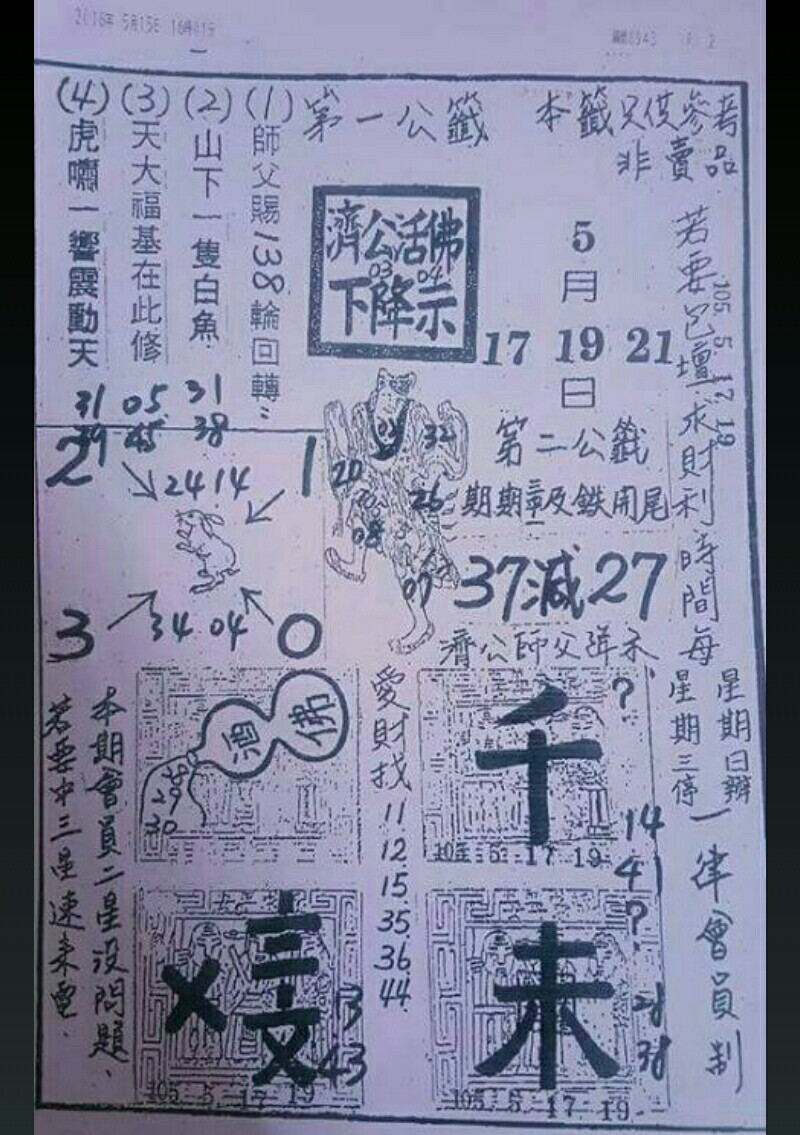 2016年 5月15日
第一公籤
本籤只供參考
非賣品
(1) 師父賜138輪迴轉
(2) 山下一隻白魚
(3) 天大福基在此修
(4) 虎嘯一響震動天
濟公活佛
03 04
下降示
5
月
17 19 21
日
若要包壇求財利時間每
105 5. 17 19
星期日辦
星期三停
一律會員制
31 05 31
39 45 38
2
1
24 14
3
34 04
0
32
20
26
08
07
第二公籤
期期
及鉄開尾
37減27
濟公師父降示
酒
佛
29
30
愛財找
11
12
15
35
36
44
千
?
14
41
105 5. 17 19
?
未
28
38
105 5. 17 19
13
43
105 5. 17 19
本期會員二星沒問題、
若要中三星速來電.